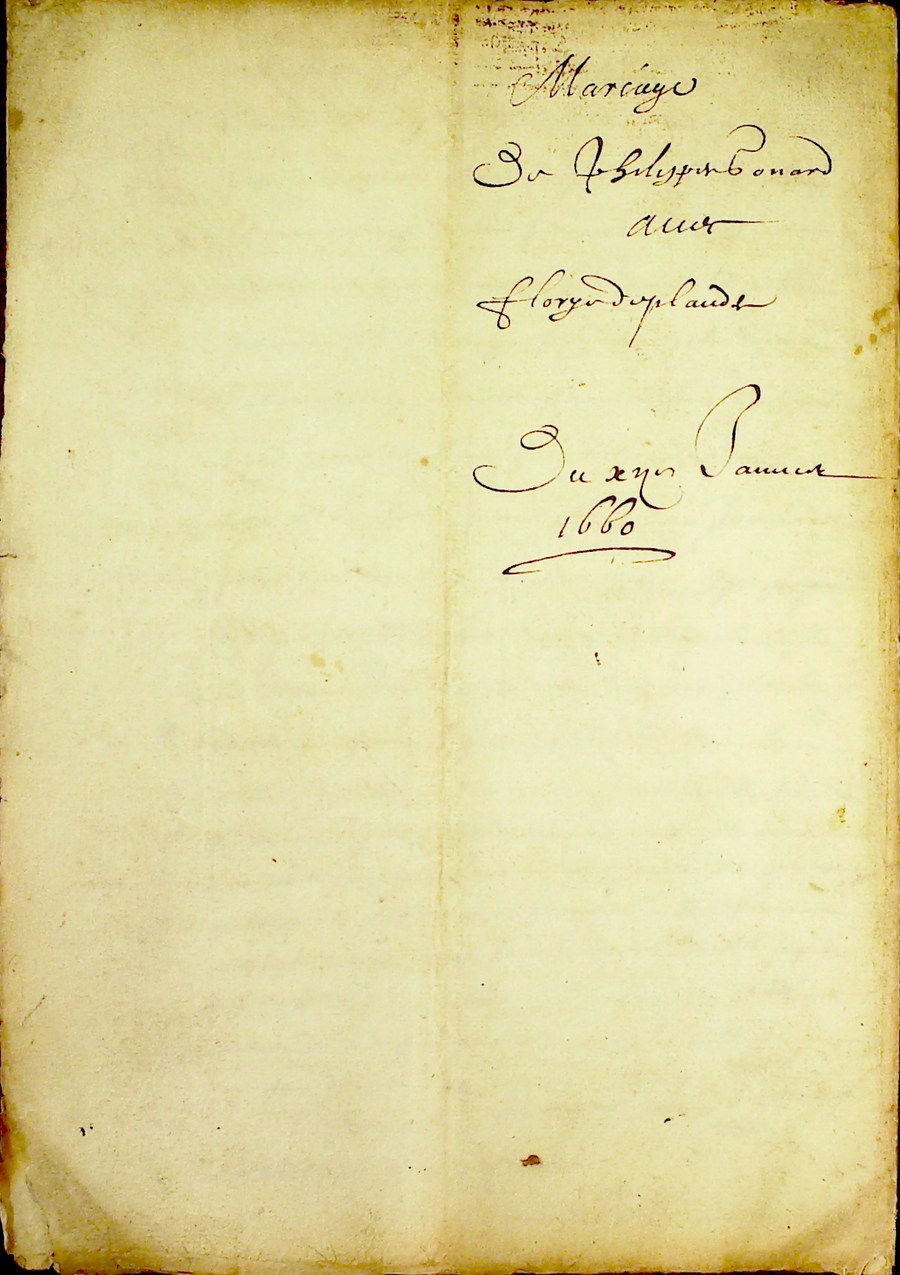 Mariage
De Philippes Bonard
avec
Florye Desplande
Du xije Janvier
1660